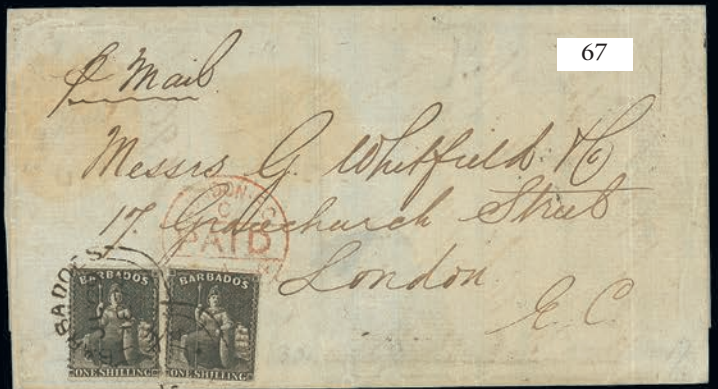 67
p Mail
Messrs G. Whitfield & Co
17. Gracechurch Street
London
E C
PAID
BARBADOS
BARBADOS BARBADOS
ONE SHILLING ONE SHILLING